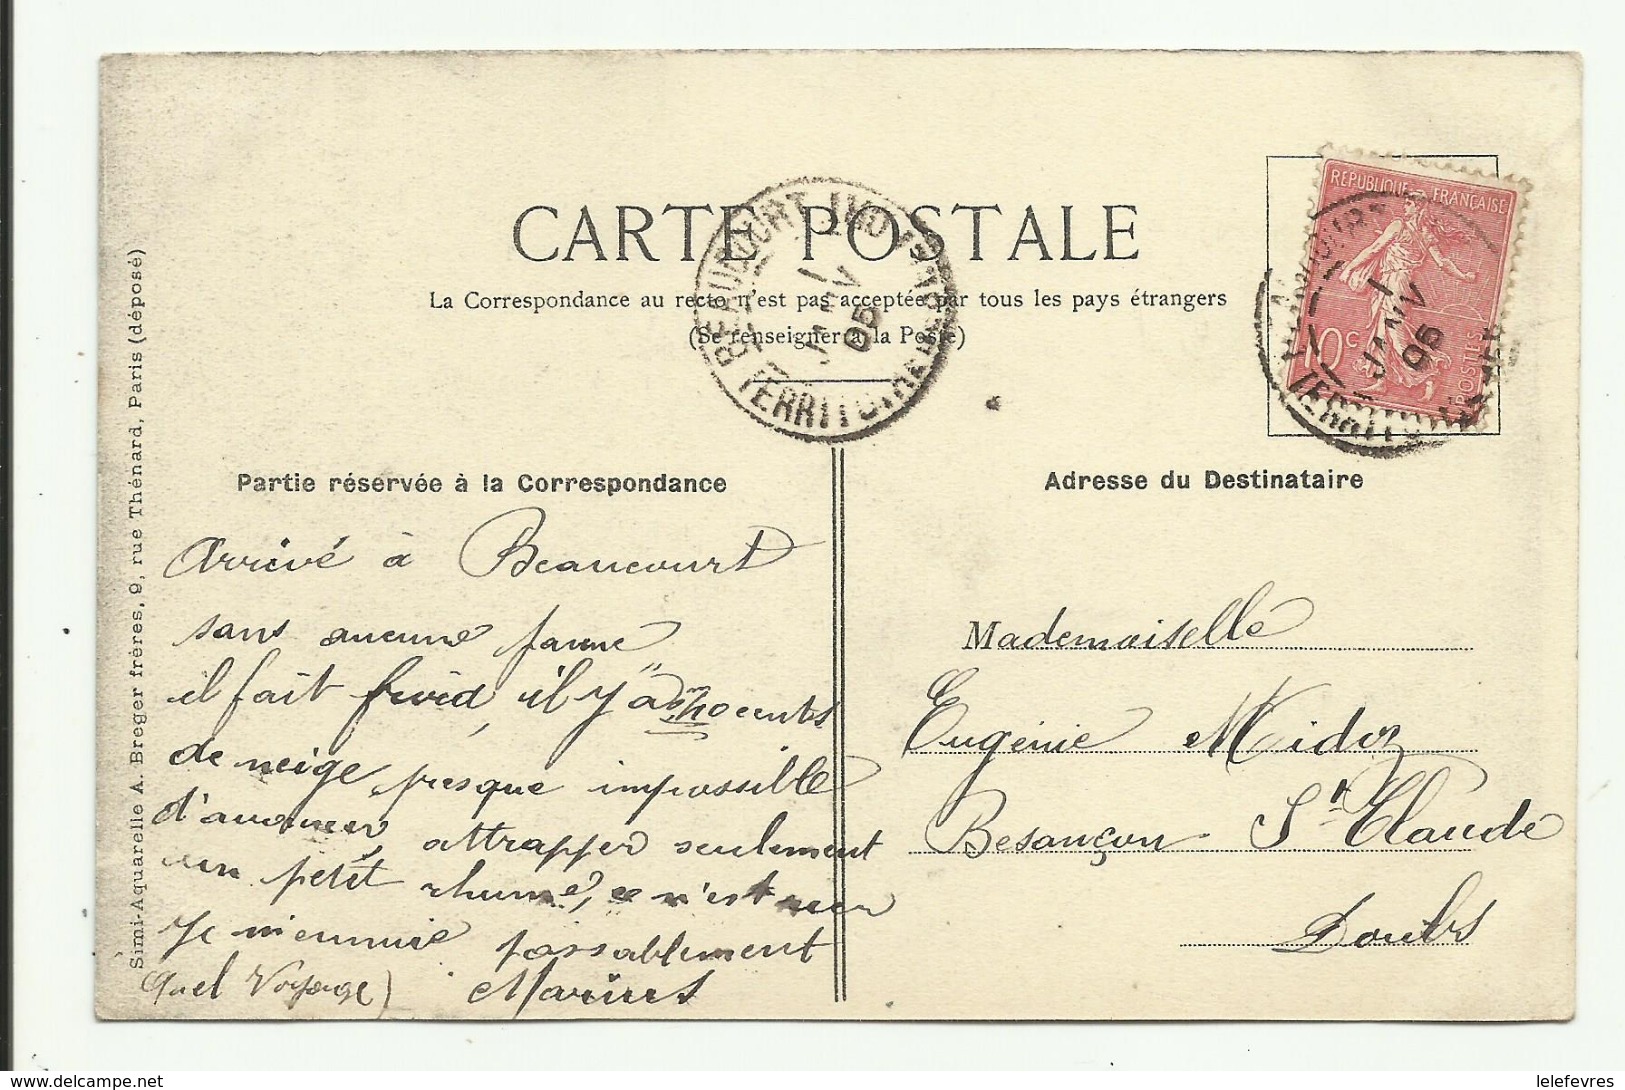 CARTE POSTALE
La Correspondance au recto n'est pas acceptée par tous les pays étrangers
(Se renseigner à la Poste)
BEAUCOURT
TERRITOIRE
JANV
05
REPUBLIQUE FRANÇAISE
10 c
POSTES
JANV
05
Partie réservée à la Correspondance
Arrivé à Beaucourt
sans aucune panne
il fait froid, il y a
de neige presque impossible
d'avancer, attrapper seulement
un petit rhume, ce n'est rien
Je m'ennuie passablement
(quel Voyage) Marius
Adresse du Destinataire
Mademoiselle
Eugénie Midoz
Besançon St Claude
Doubs
Simi-Aquarelle A. Breger frères, 9, rue Thénard, Paris (déposé)
lelefevres
www.delcampe.net